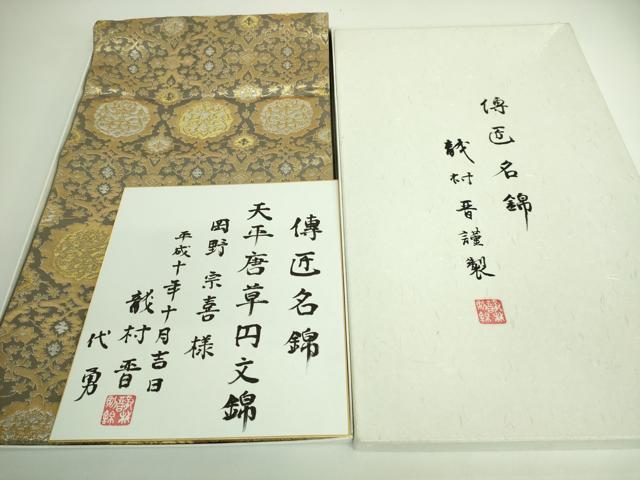 傳匠名錦
天平唐草円文錦
田野宗喜様
平成十年十月吉日
龍村晋
代勇
傳匠名錦
龍村晋謹製